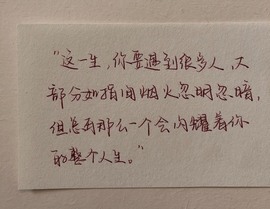 "这一生,你要遇到很多人,大
部分如指间烟火忽明忽暗,
但总有那么一个会闪耀着你
的整个人生。"